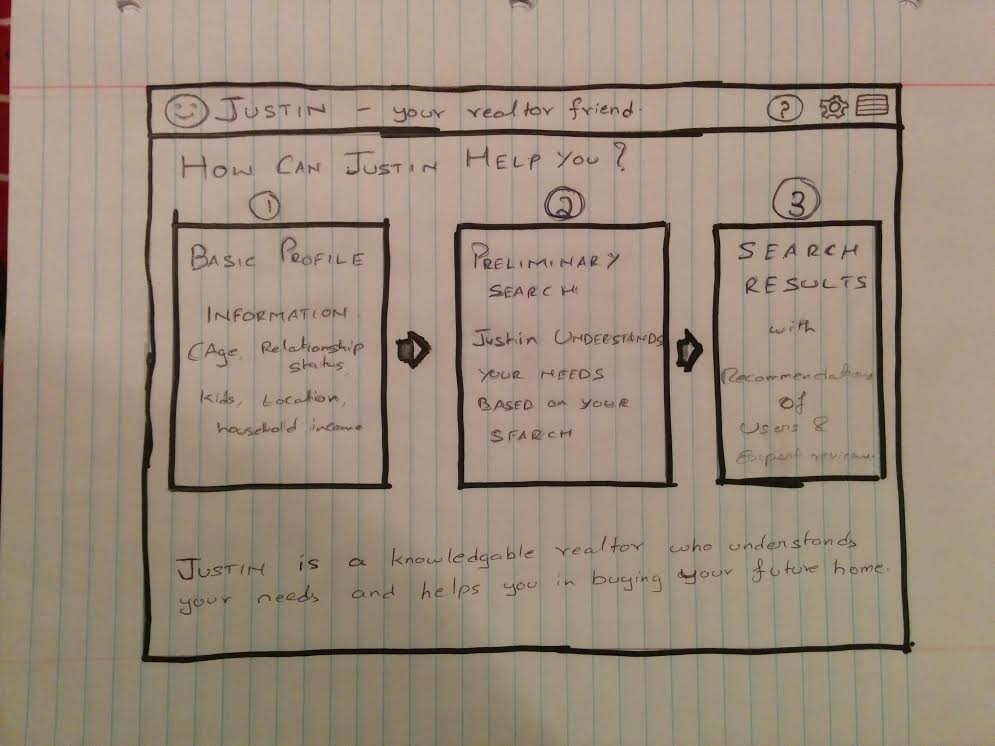 JUSTIN - your realtor friend.
?
HOW CAN JUSTIN HELP YOU?
1
BASIC PROFILE
INFORMATION
(Age, Relationship
status,
kids, Location,
household income
2
PRELIMINARY
SEARCH
Justin UNDERSTANDS
YOUR NEEDS
BASED ON YOUR
SEARCH
3
SEARCH
RESULTS
with
Recommendations
OF
Users &
Expert reviews.
JUSTIN is a knowledgable realtor who understands
your needs and helps you in buying your future home.